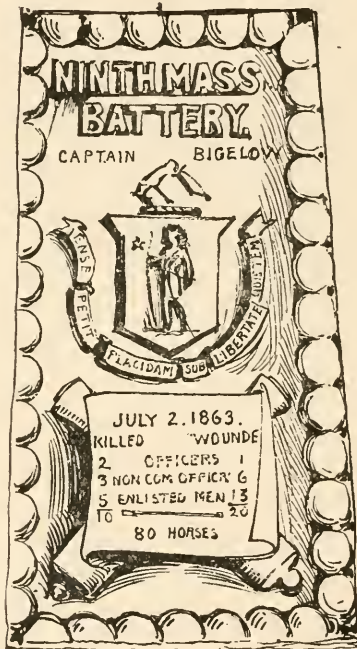 NINTH MASS
BATTERY.
CAPTAIN BIGELOW
ENSE PETIT PLACIDAM SUB LIBERTATE
JULY 2. 1863.
KILLED WOUNDE
2 OFFICERS 1
3 NON COM OFFICR 6
5 ENLISTED MEN 13
10 20
80 HORSES